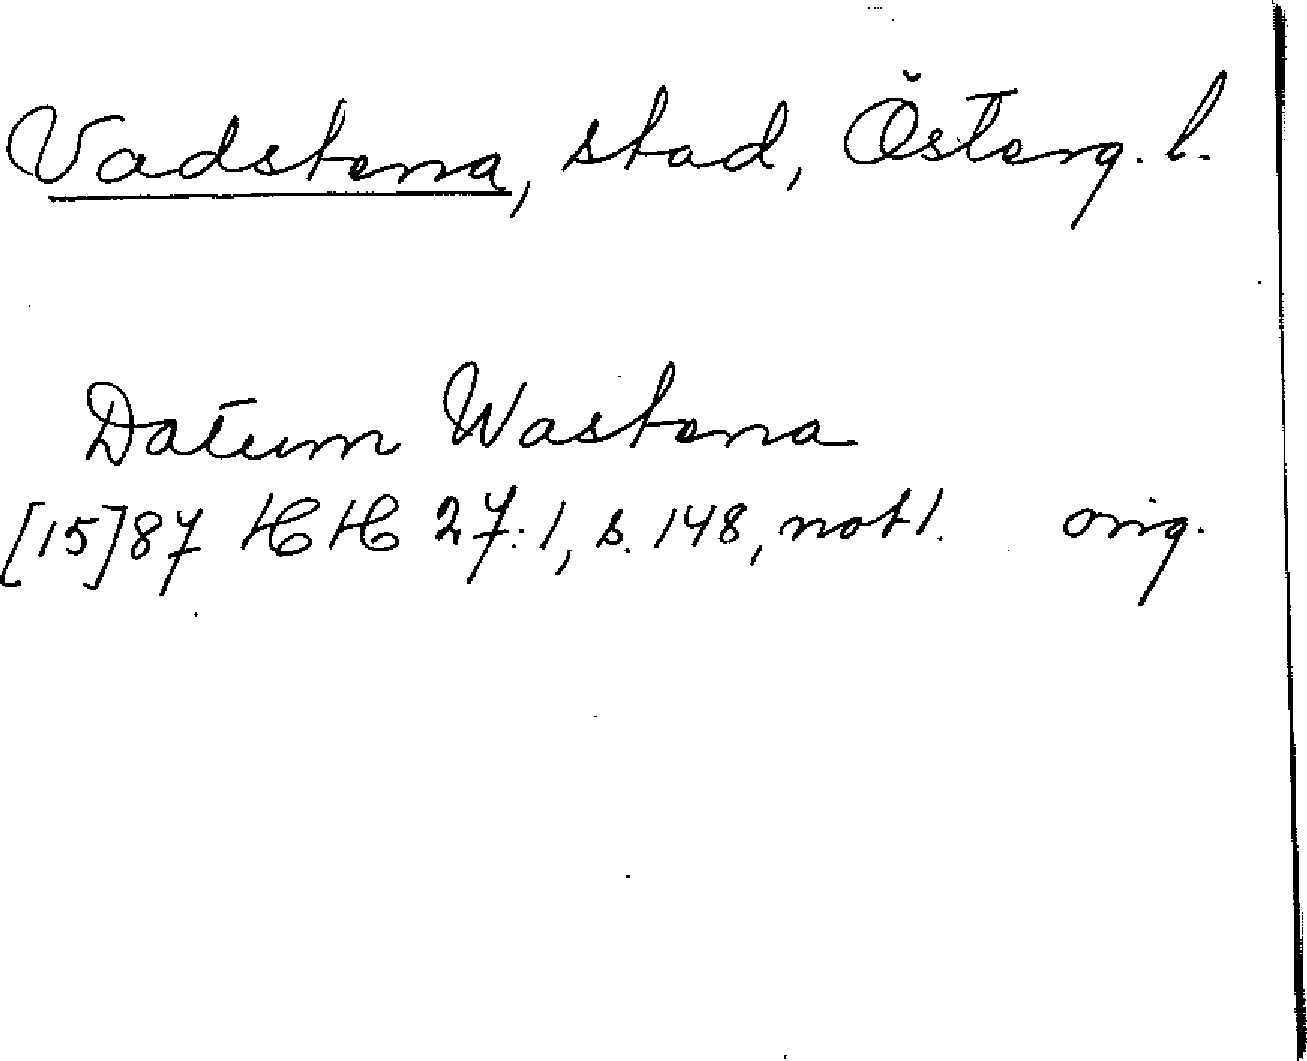 Vadstena, stad, Österg. l.
Datum Wastena
[15]87 HH 27:1, s. 148, not 1. orig.